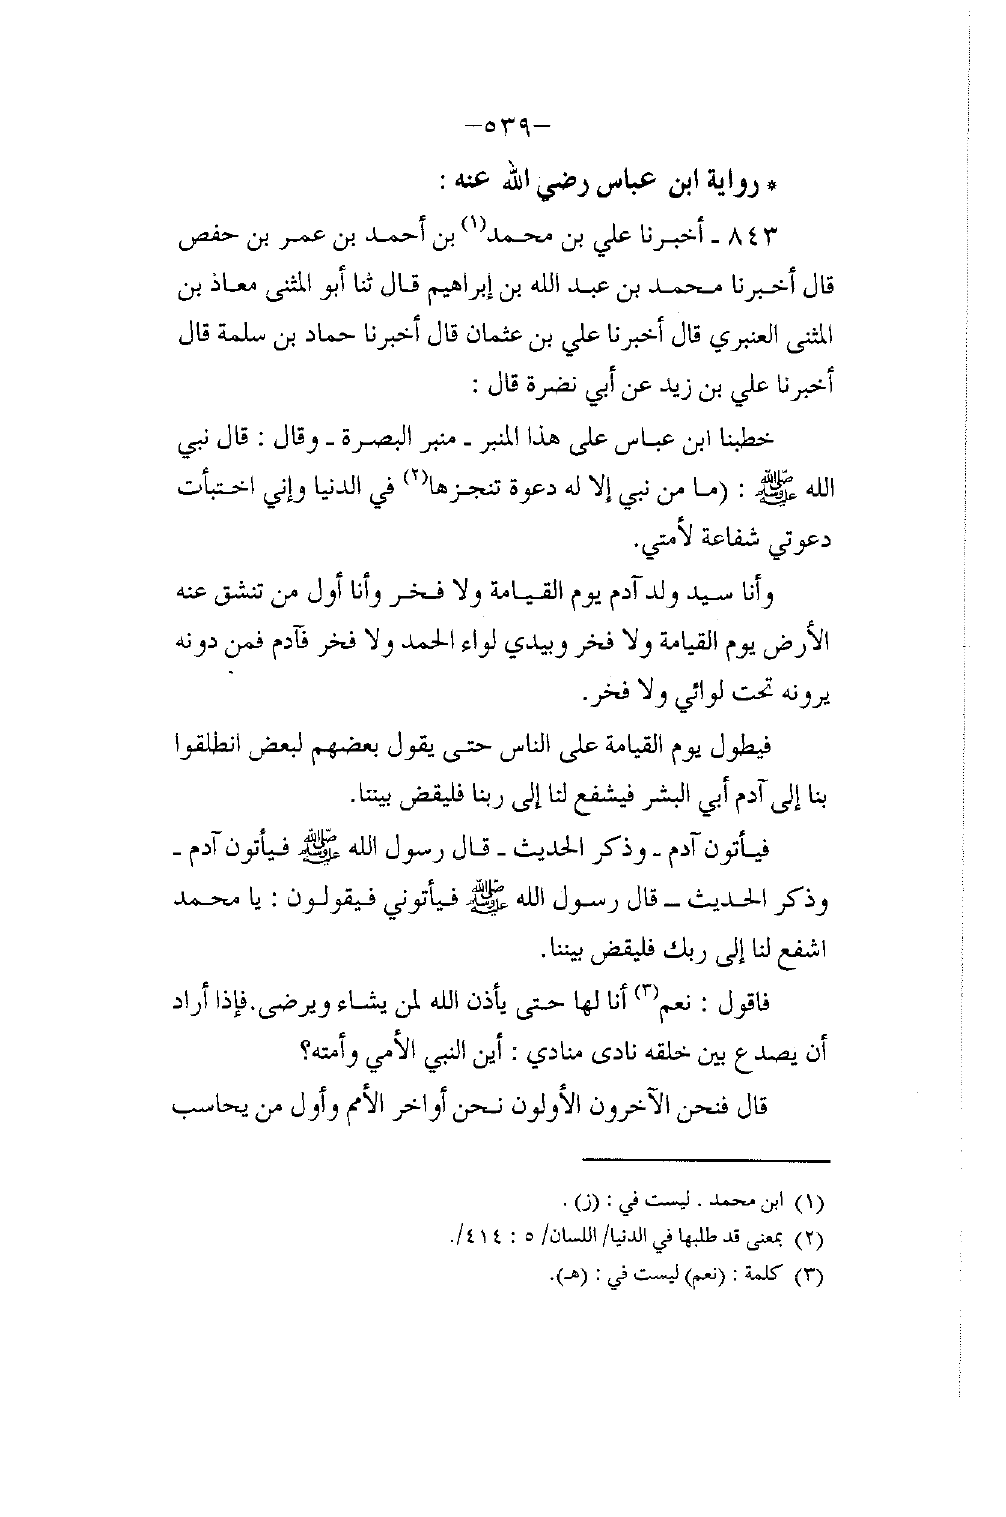 –٥٣٩–
* رواية ابن عباس رضي الله عنه :
٨٤٣ ـ أخبرنا علي بن محمد(١) بن أحمد بن عمر بن حفص
قال أخبرنا محمد بن عبد الله بن إبراهيم قال ثنا أبو المثنى معاذ بن
المثنى العنبري قال أخبرنا علي بن عثمان قال أخبرنا حماد بن سلمة قال
أخبرنا علي بن زيد عن أبي نضرة قال :
خطبنا ابن عباس على هذا المنبر ـ منبر البصرة ـ وقال : قال نبي
الله ﷺ : (ما من نبي إلا له دعوة تنجزها(٢) في الدنيا وإني اختبأت
دعوتي شفاعة لأمتي.
وأنا سيد ولد آدم يوم القيامة ولا فخر وأنا أول من تنشق عنه
الأرض يوم القيامة ولا فخر وبيدي لواء الحمد ولا فخر فآدم فمن دونه
يرونه تحت لوائي ولا فخر.
فيطول يوم القيامة على الناس حتى يقول بعضهم لبعض انطلقوا
بنا إلى آدم أبي البشر فيشفع لنا إلى ربنا فليقض بيننا.
فيأتون آدم ـ وذكر الحديث ـ قال رسول الله ﷺ فيأتون آدم ـ
وذكر الحديث ـ قال رسول الله ﷺ فيأتوني فيقولون : يا محمد
اشفع لنا إلى ربك فليقض بيننا.
فاقول : نعم(٣) أنا لها حتى يأذن الله لمن يشاء ويرضى. فإذا أراد
أن يصدع بين خلقه نادى منادي : أين النبي الأمي وأمته؟
قال فنحن الآخرون الأولون نحن أواخر الأمم وأول من يحاسب
(١) ابن محمد . ليست في : (ز) .
(٢) بمعنى قد طلبها في الدنيا/ اللسان/ ٥ : ٤١٤/.
(٣) كلمة : (نعم) ليست في : (هـ).